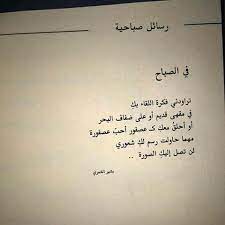 رسائل صباحية
في الصباح
تراودني فكرة اللقاء بك
في مقهى قديم أو على ضفاف البحر
أو أحلق معك كـ عصفور أحب عصفورة
مهما حاولت رسم لك شعوري
لن تصل إليك الصورة ..